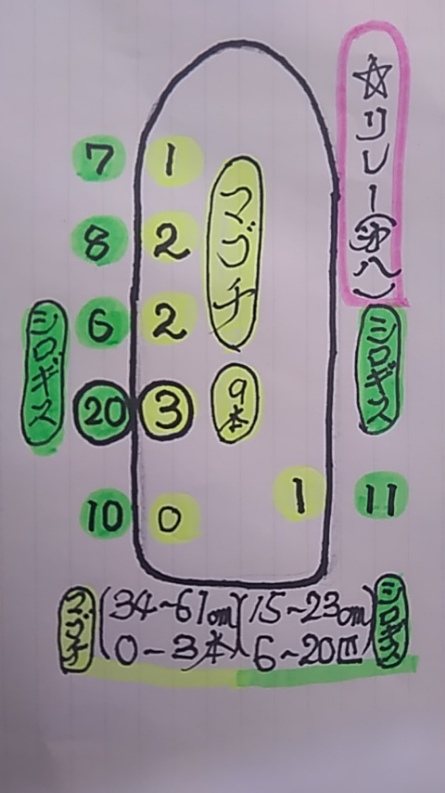 ☆リレー
マゴチ
7 1
8 2
6 2
シロギス
シロギス
20 3
9本
10 0
1 11
マゴチ (34~61cm)(15~23cm) シロギス
0-3本 6~20匹